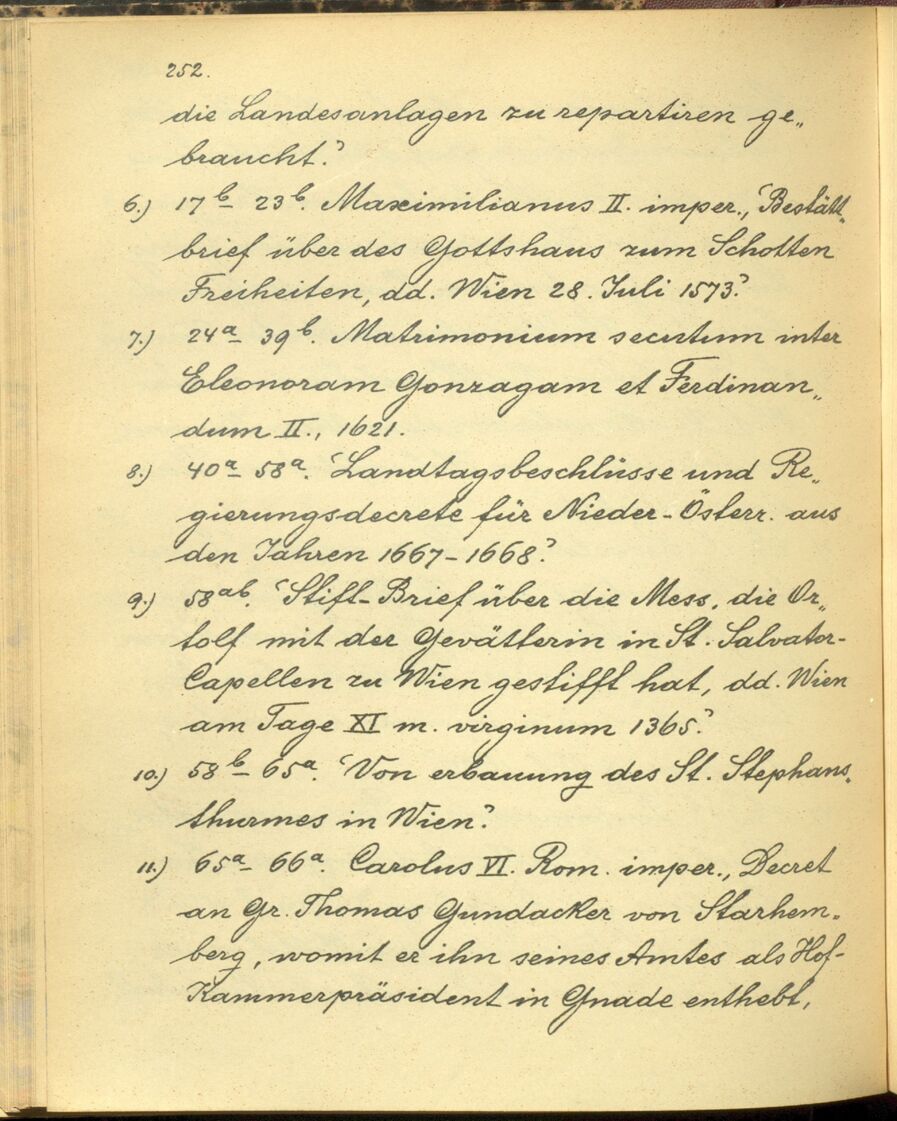 252.
die Landesanlagen zu repartiren ge„
braucht.'
6.) 17b- 23b. Maximilianus II. imper., 'Bestätt„
brief über des Gottshaus zum Schotten
Freiheiten, dd. Wien 28. Juli 1573.'
7.) 24a- 39b. Matrimonium secutum inter
Eleonoram Gonzagam et Ferdinan„
dum II., 1621.
8.) 40a- 58a. 'Landtagsbeschlüsse und Re„
gierungsdecrete für Nieder-Österr. aus
den Jahren 1667-1668.'
9.) 58ab. 'Stift-Brief über die Mess, die Or„
tolf mit der Gevätterin in St. Salvator-
Capellen zu Wien gestifft hat, dd. Wien
am Tage XI m. virginum 1365.'
10.) 58b- 65a. 'Von erbauung des St. Stephans„
thurmes in Wien.'
11.) 65a- 66a. Carolus VI. Rom. imper., Decret
an Gr. Thomas Gundacker von Starhem„
berg, womit er ihn seines Amtes als Hof-
Kammerpräsident in Gnade enthebt,